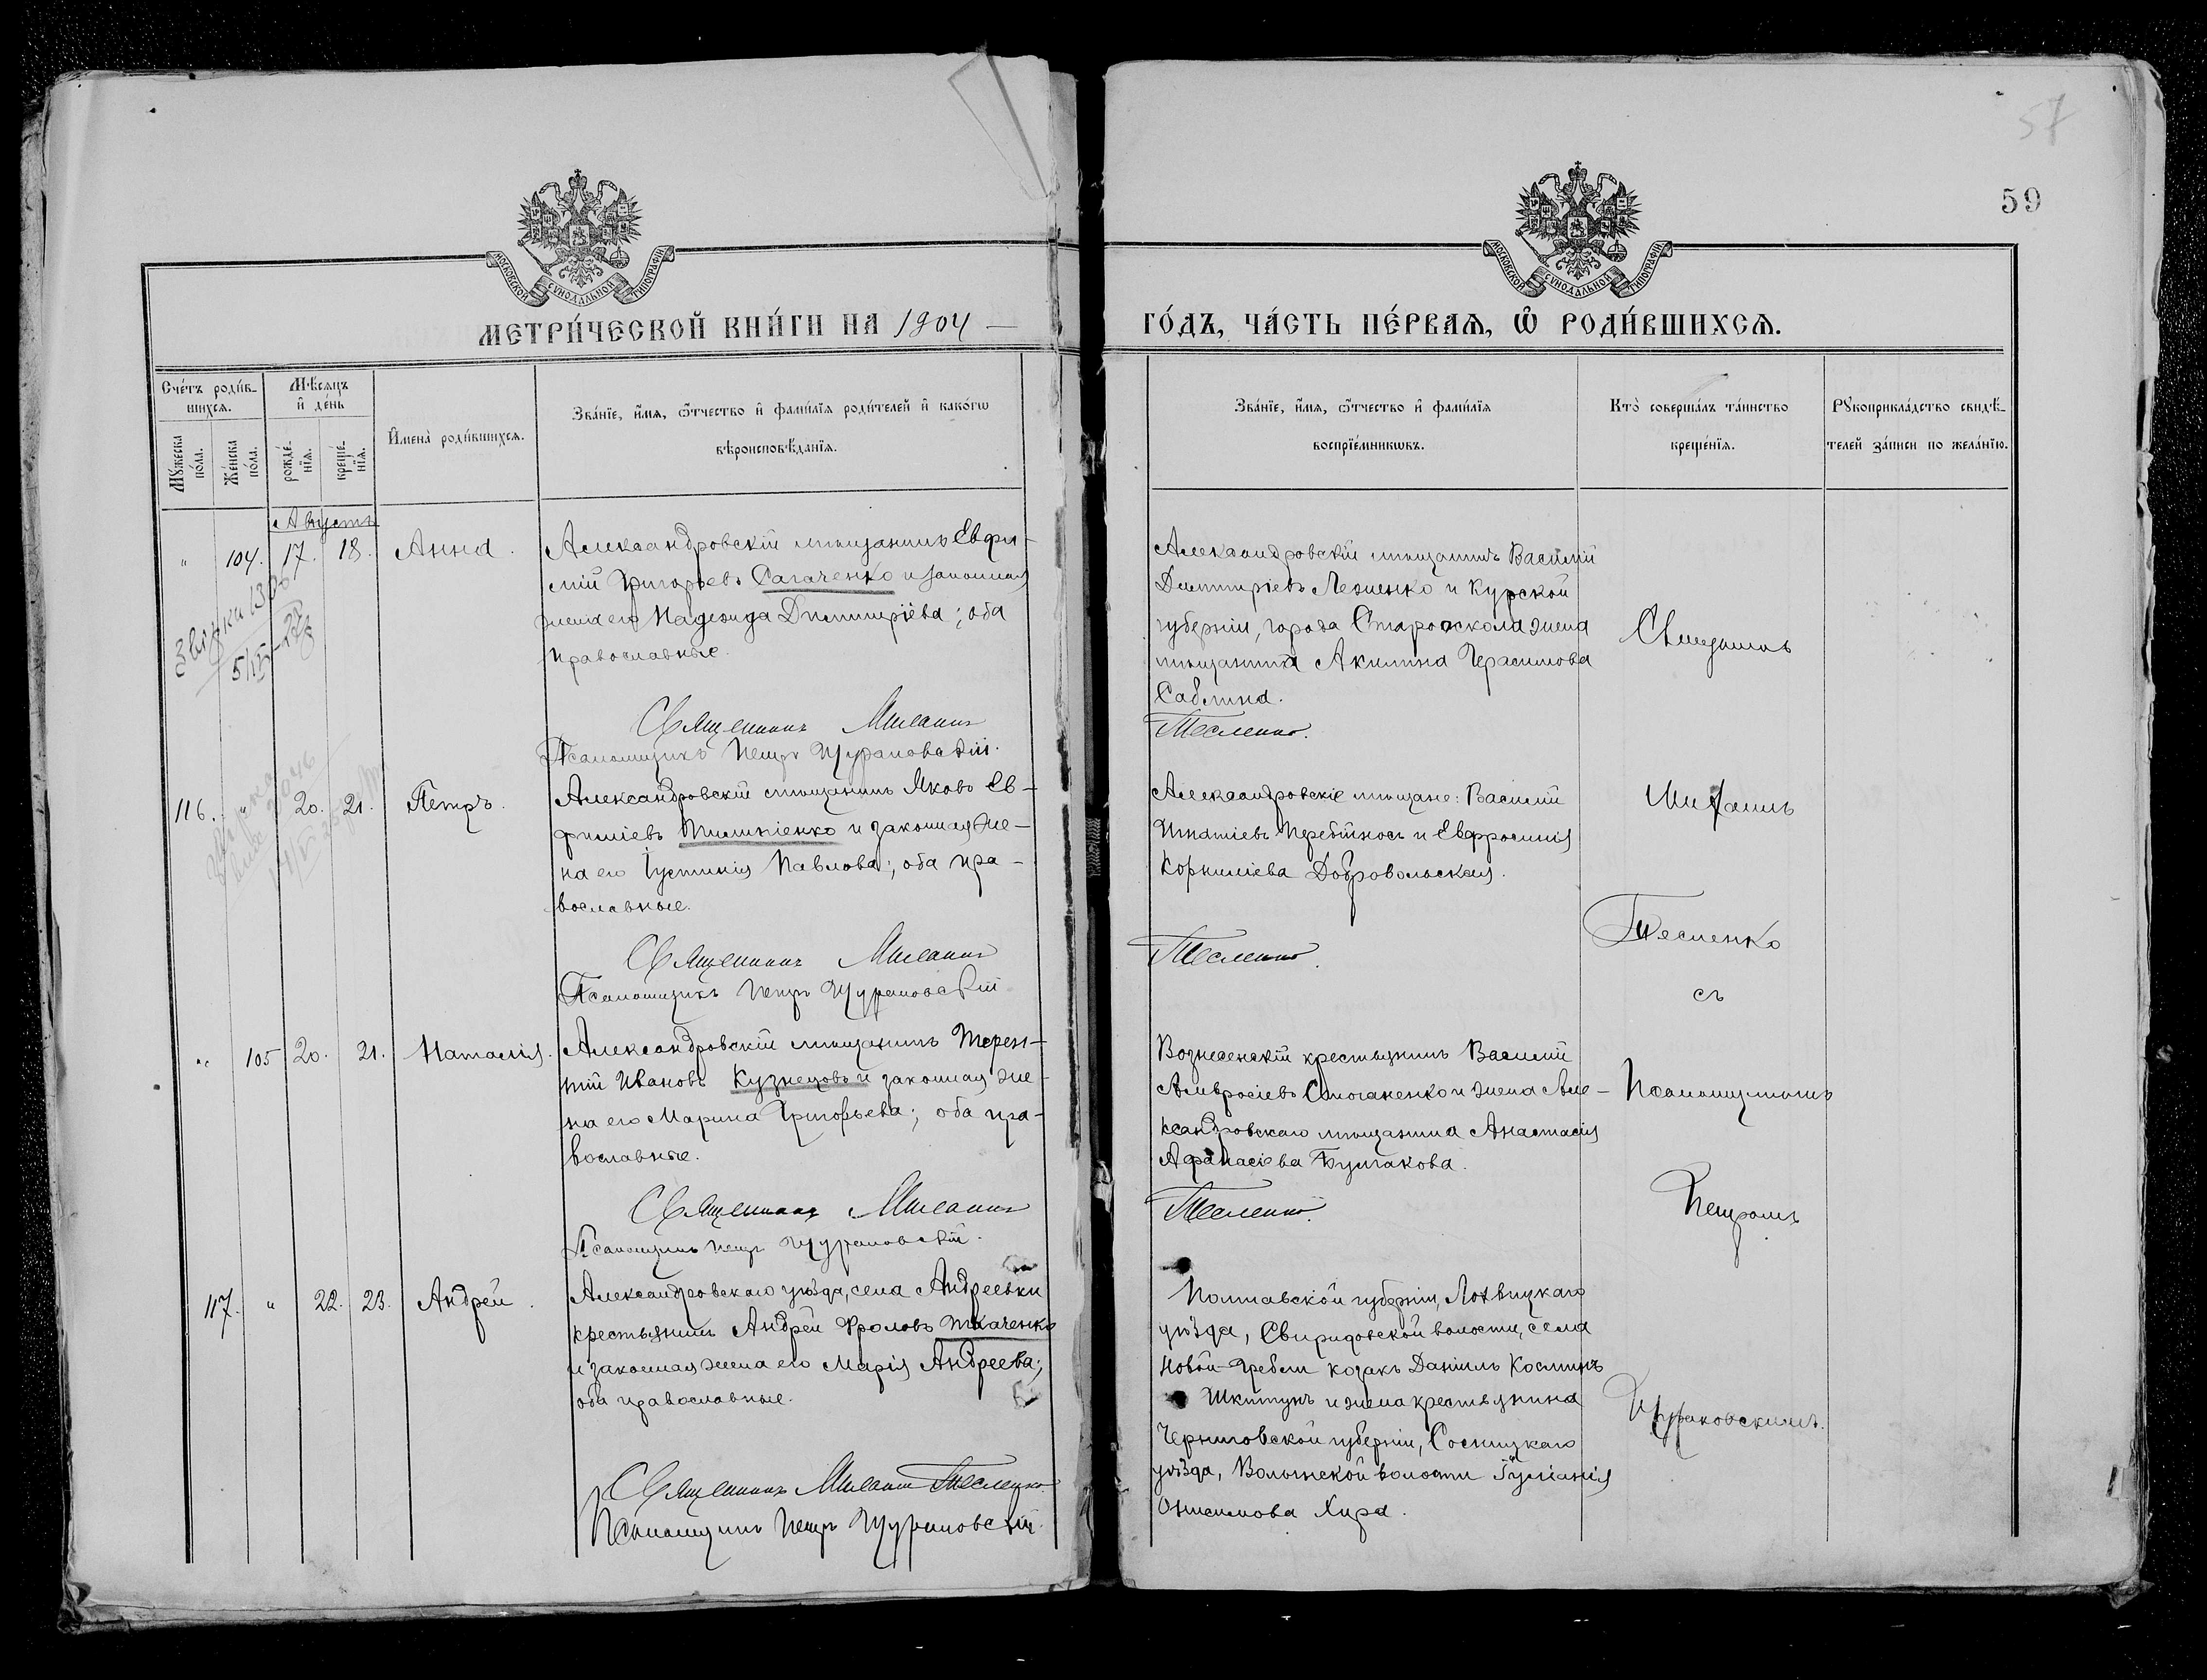 57
59
МОСКОВСКОЙ СѴНОДАЛЬНОЙ ТИПОГРАФІИ
МОСКОВСКОЙ СѴНОДАЛЬНОЙ ТИПОГРАФІИ
МЕТРИ́ЧЕСКОЙ КНИ́ГИ НА 1904
ГО́ДЪ, ЧА́СТЬ ПЕ́РВАѦ, Ѽ РОДИ́ВШИХСѦ.
Сче́тъ роди́в-
шихсѧ.
Мꙋ́жеска
по́ла.
Же́нска
по́ла.
Мѣ́сѧцъ
и҆ де́нь
рожде́-
нїѧ.
креще́-
нїѧ.
И҆мена̀ роди́вшихсѧ.
Зва́нїе, и҆́мѧ, ѻ҆́тчество и҆ фами́лїѧ роди́телей и҆ како́гѡ
вѣроисповѣ́данїѧ.
Зва́нїе, и҆́мѧ, ѻ҆́тчество и҆ фами́лїѧ
воспрїе́мникѡвъ.
Кто̀ соверша́лъ та́инство
креще́нїѧ.
Рꙋкоприкла́дство свидѣ́-
телей за́писи по жела́нїю.
Августъ
" 104. 17. 18. Анна.
Александровскій мѣщанинъ Евфи-
мій Григорьевъ Сагаченко и законная
жена его Надежда Димитріева; оба
православные.
Священникъ Михаилъ
Псаломщикъ Петръ Щураковскій.
Александровскій мѣщанинъ Василій
Димитріевъ Леоненко и Курской
губерніи, города Староскола жена
мѣщанина Акилина Герасимова
Саблина.
Тесленко.
Священникъ
116. " 20. 21. Петръ.
Александровскій мѣщанинъ Яковъ Ев-
фиміевъ Пилипіенко и законная же-
на его Іустинія Павлова; оба пра-
вославные.
Священникъ Михаилъ
Псаломщикъ Петръ Щураковскій
Александровскіе мѣщане: Василій
Игнатіевъ Перебійносъ и Евфросинія
Корниліева Добровольская.
Тесленко.
Михаилъ
Тесленко
съ
" 105 20. 21. Наталія.
Александровскій мѣщанинъ Терен-
тій Ивановъ Кузнецовъ и законная же-
на его Марина Григорьева; оба пра-
вославные.
Священникъ Михаилъ
Псаломщикъ Петръ Щураковскій.
Вознесенскій крестьянинъ Василій
Амвросіевъ и жена Але-
ксандровскаго мѣщанина Анастасія
Афанасіева Булгакова.
Тесленко.
Псаломщикомъ
Петромъ
117. " 22. 23. Андрей.
Александровскаго уѣзда, села Андреевки
крестьянинъ Андрей Фроловъ Ткаченко
и законная жена его Марія Андреева;
оба православные.
Священникъ Михаилъ Тесленко
Псаломщикъ Петръ Щураковскій.
Полтавской губерніи, Лохвицкаго
уѣзда, Свиридовской волости, села
Новой-Гребли козакъ Даніилъ Косминъ
Шкитунъ и жена крестьянина
Черниговской губерніи, Сосницкаго
уѣзда, Волынской волости Іуліанія
Онисимова Хира.
Щураковскимъ.